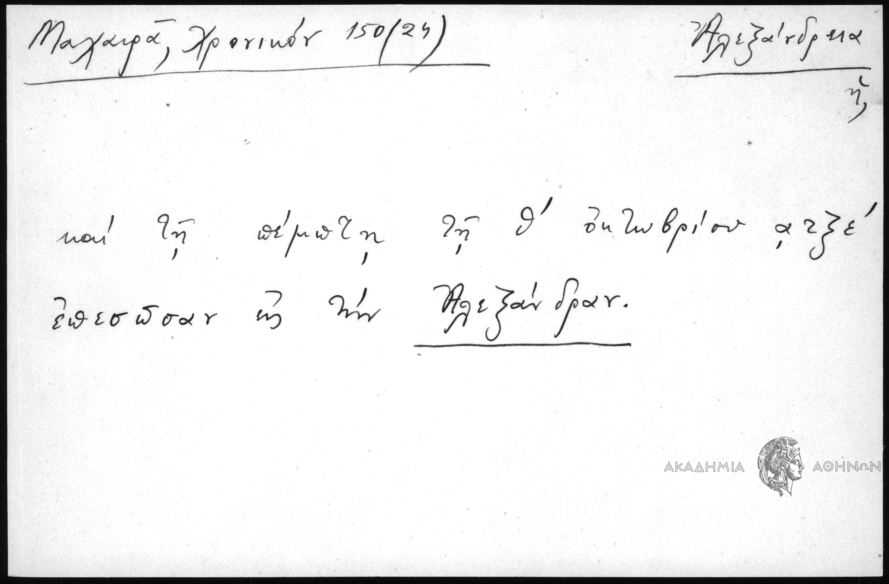 Μαχαιρᾶ, Χρονικόν 150(24)
Ἀλεξάνδρεια
ἡ,
καί τῇ πέμπτῃ τῇ θ' ὀκτωβρίου ͵ατξε'
ἐπεσῶσαν εἰς τήν Ἀλεξάνδραν.
ΑΚΑΔΗΜΙΑ ΑΘΗΝΩΝ